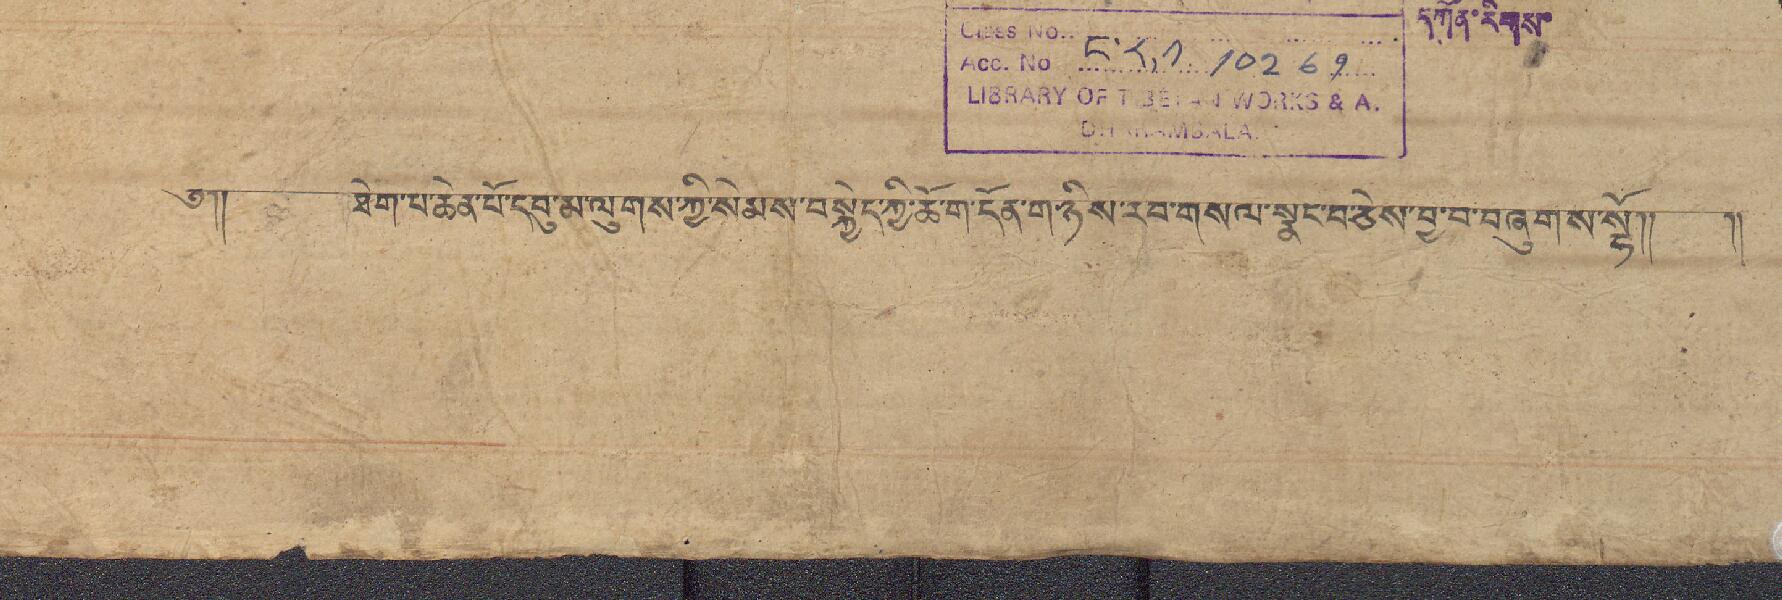 Class No..
དཀོན་རིགས་
Acc. No 10269
LIBRARY OF TIBETAN WORKS & A.
DHARAMSALA.
༄༎ ཐེག་པ་ཆེན་པོ་དབུ་མ་ལུགས་ཀྱི་སེམས་བསྐྱེད་ཀྱི་ཆོ་ག་དོན་གཉིས་རབ་གསལ་སྣང་བ་ཅེས་བྱ་བ་བཞུགས་སྷོ༎ ༎